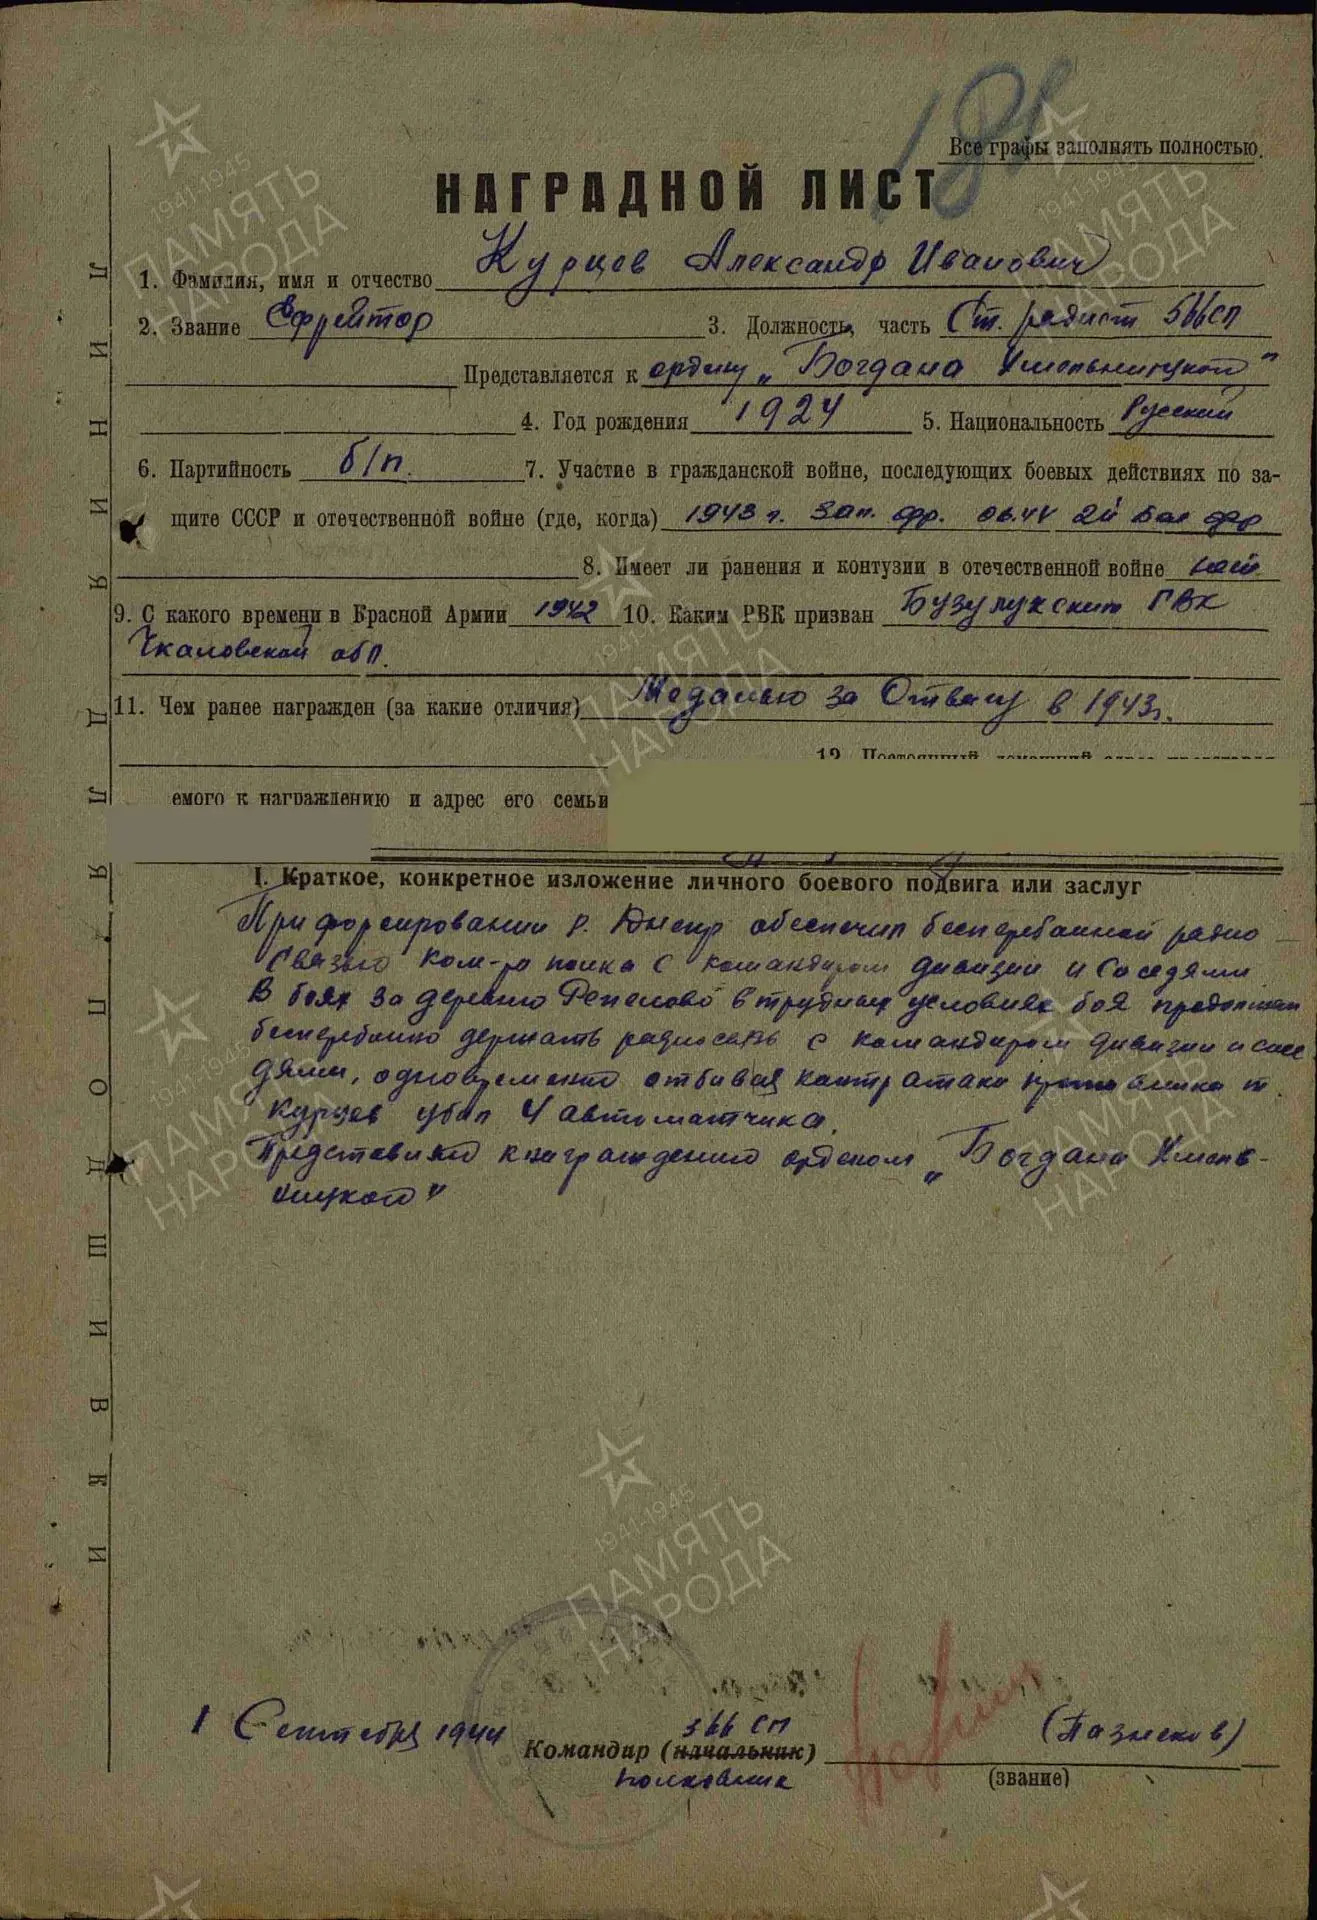 186
Все графы заполнять полностью.
НАГРАДНОЙ ЛИСТ
1. Фамилия, имя и отчество Курцев Александр Иванович
2. Звание Ефрейтор 3. Должность, часть Ст. радист 366СП
Представляется к ордену „Богдана Хмельницкого"
4. Год рождения 1924 5. Национальность Русский
6. Партийность б/п. 7. Участие в гражданской войне, последующих боевых действиях по за-
щите СССР и отечественной войне (где, когда) 1943 г. Зап. фр. 06.44 2й Бел фр
8. Имеет ли ранения и контузии в отечественной войне
9. С какого времени в Красной Армии 1942 10. Каким РВК призван Бузулукским ГВК
Чкаловской обл.
11. Чем ранее награжден (за какие отличия) Медалью за Отвагу в 1943г.
12. Постоянный домашний адрес представля-
емого к награждению и адрес его семьи
I. Краткое, конкретное изложение личного боевого подвига или заслуг
При форсировании р. Днепр обеспечил бесперебойной радио
связью ком-ра полка с командиром дивизии и соседями
В боях за деревню в трудных условиях боя продолжал
бесперебойно держать радиосвязь с командиром дивизии и сосе
дями, одновременно отбивая контратаки противника т.
Курцев убил 4 автоматчика.
Представляю к награждению орденом „Богдана Хмель-
ницкого"
1 Сентября 1944 366 СП
Командир (начальник)
полковник (звание)
ЛИНИЯ ДЛЯ ПОДШИВКИ
1941-1945
ПАМЯТЬ
НАРОДА